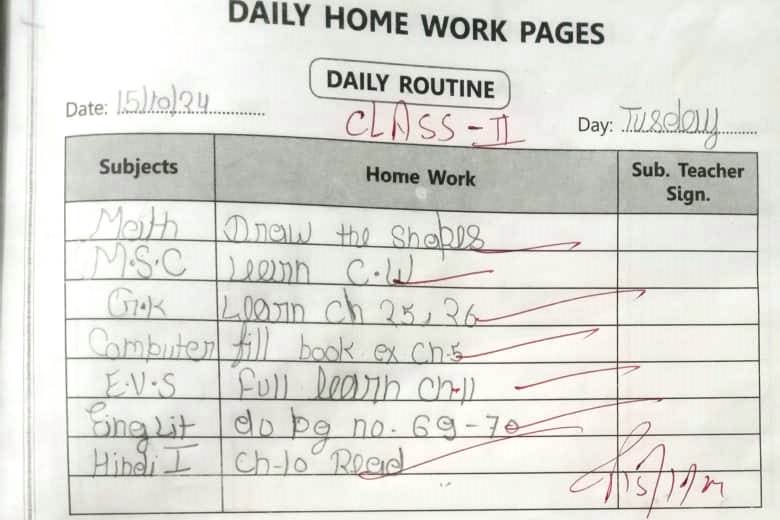 DAILY HOME WORK PAGES
DAILY ROUTINE
Date: 15/10/24
CLASS - II
Day: Tuseday
Subjects Home Work Sub. Teacher Sign.
Math Draw the shapes
M.S.C Learn C.W
G.K Learn ch 25, 26
Computer fill book ex Ch.5
E.V.S Full learn Ch-11
Eng Lit do pg no. 69-70
Hindi I Ch-10 Read